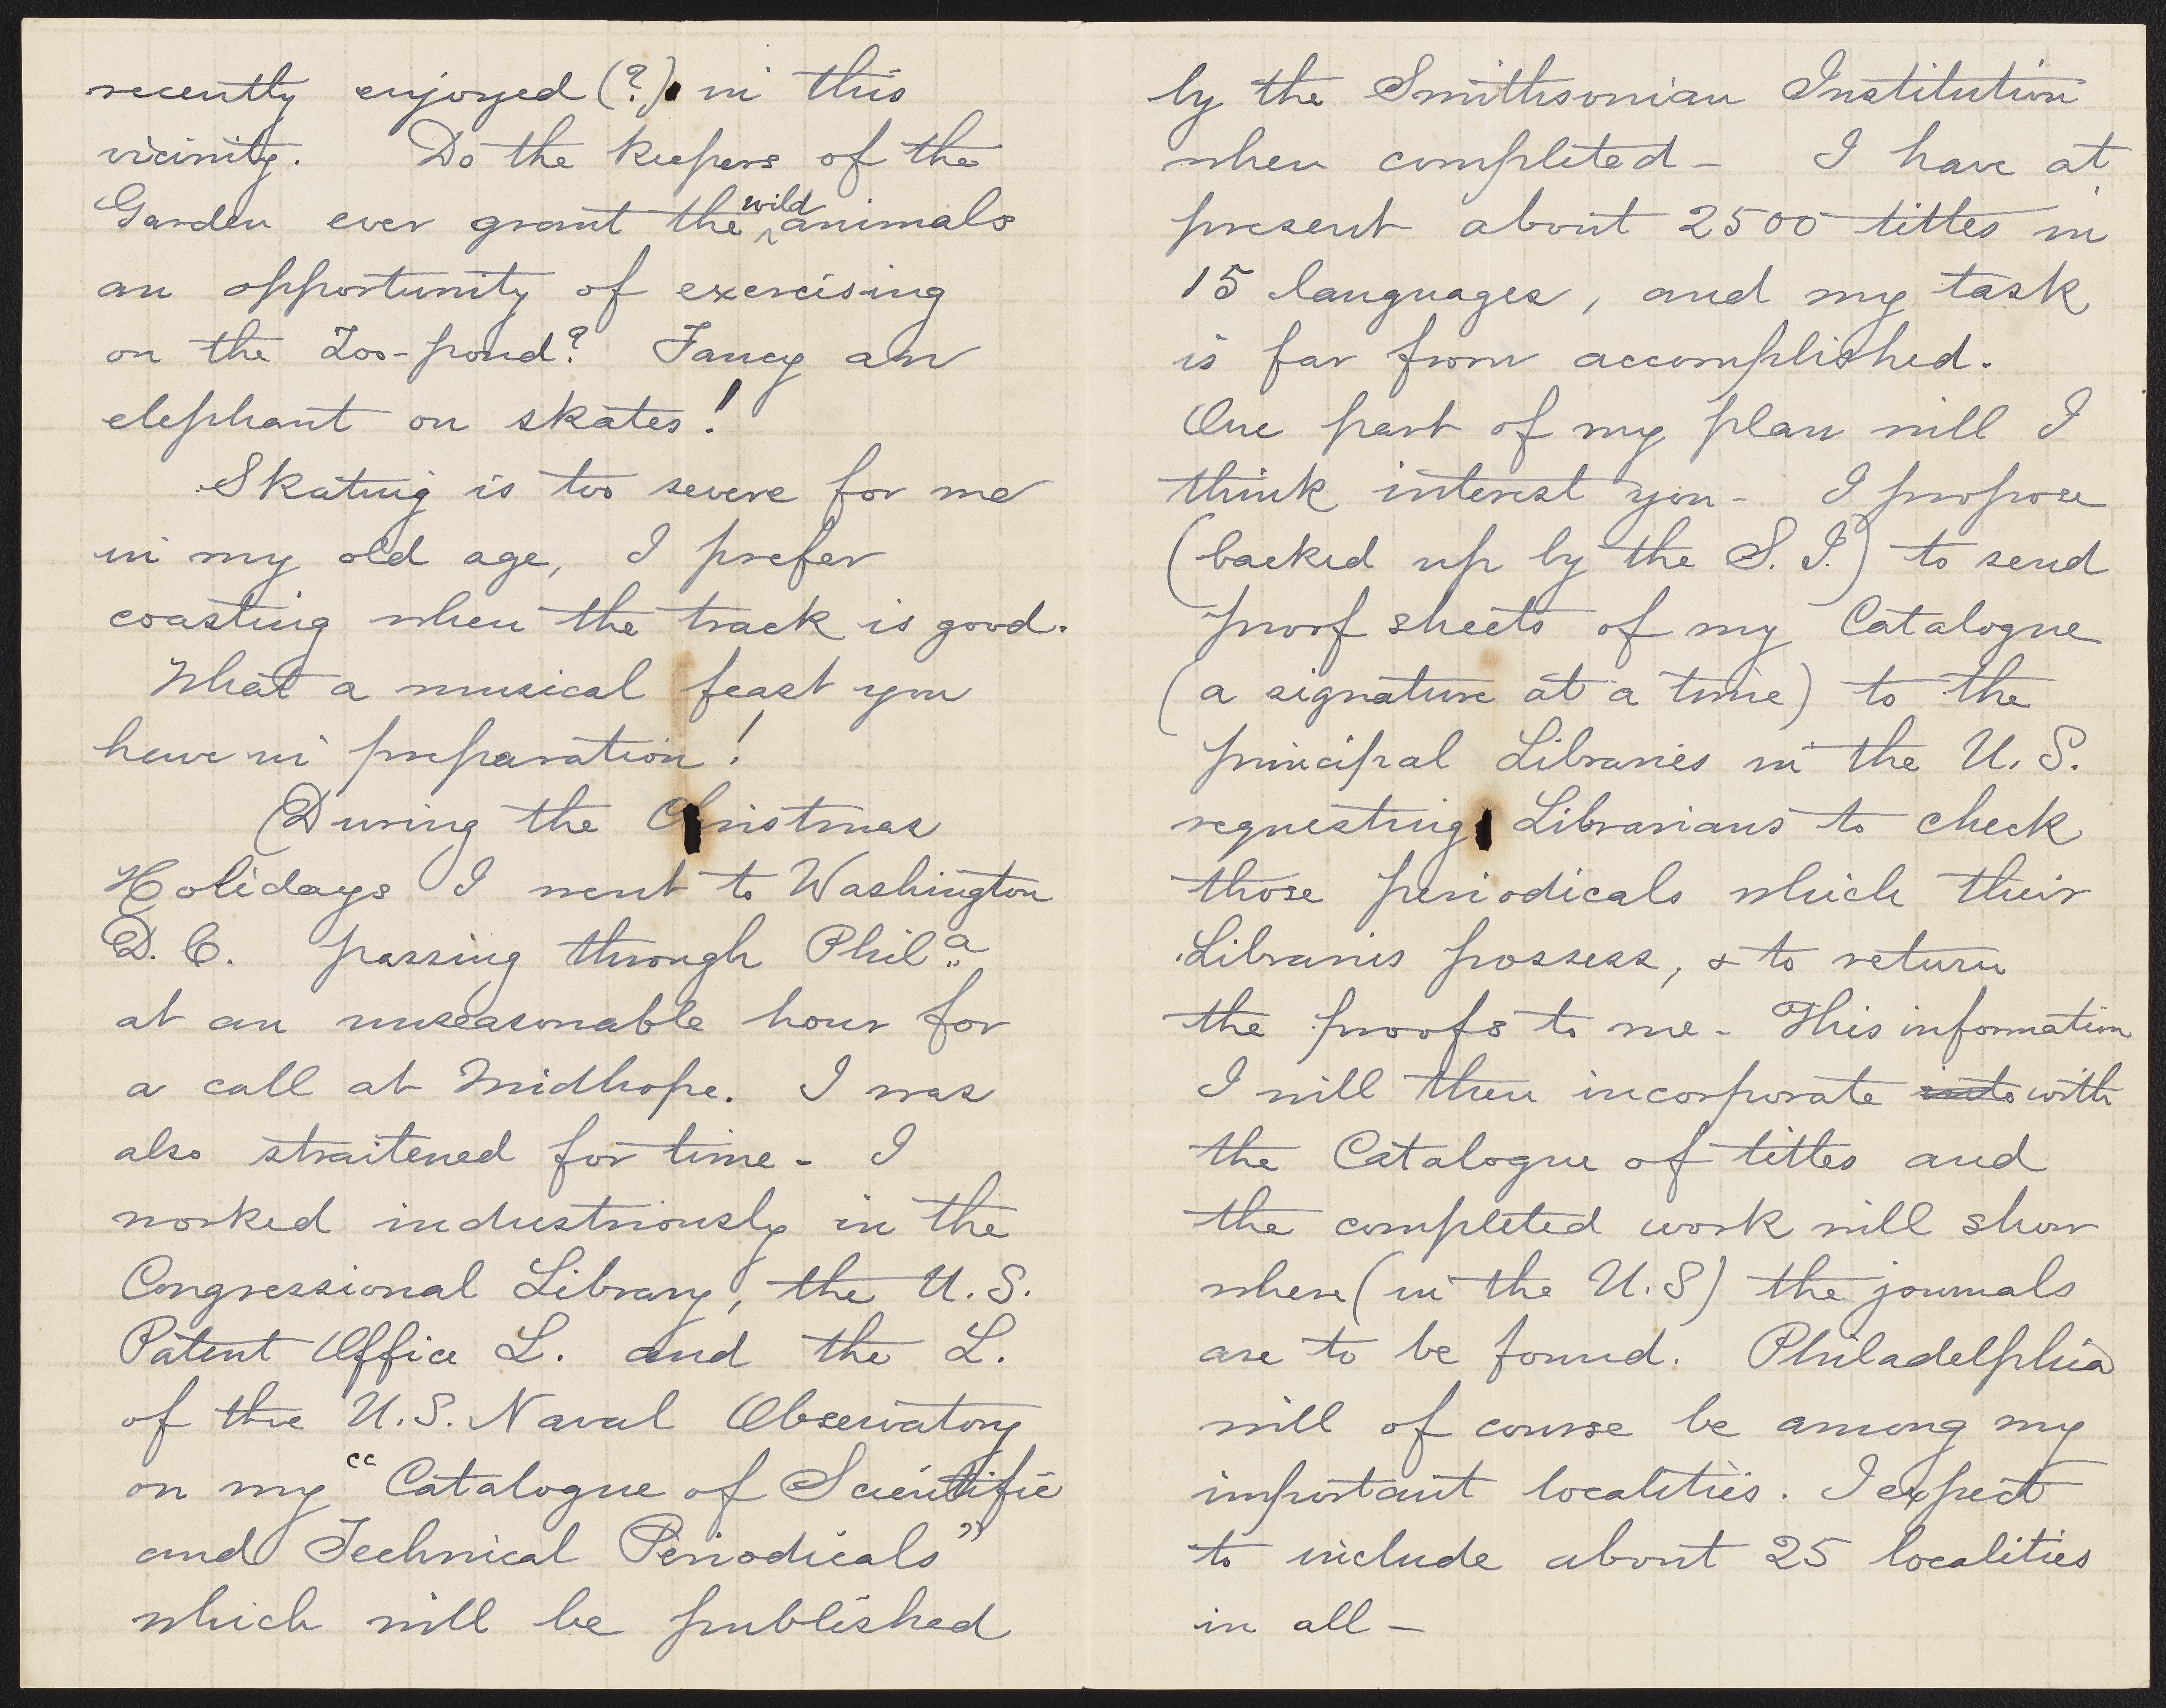 recently enjoyed (?) in this
vicinity. Do the keepers of the
Garden ever grant the wild animals
an opportunity of exercising
on the Zoo-pond? Fancy an
elephant on skates!
Skating is too severe for me
in my old age, I prefer
coasting when the track is good.
What a musical feast you
have in preparation!
During the Christmas
Holidays I went to Washington
D.C. passing through Phila
at an unseasonable hour for
a call at Midhope. I was
also straitened for time - I
worked industriously in the
Congressional Library, the U.S.
Patent Office L. and the L.
of the U.S. Naval Observatory
on my "Catalogue of Scientific
and Technical Periodicals"
which will be published
by the Smithsonian Institution
when completed - I have at
present about 2500 titles in
15 languages, and my task
is far from accomplished.
One part of my plan will I
think interest you - I propose
(backed up by the S.I.) to send
proof sheets of my Catalogue
(a signature at a time) to the
principal Libraries in the U.S.
requesting Librarians to check
those periodicals which their
Libraries possess, & to return
the proofs to me - This information
I will then incorporate into with
the Catalogue of titles and
the completed work will show
where (in the U.S) the journals
are to be found. Philadelphia
will of course be among my
important localities. I expect
to include about 25 localities
in all -